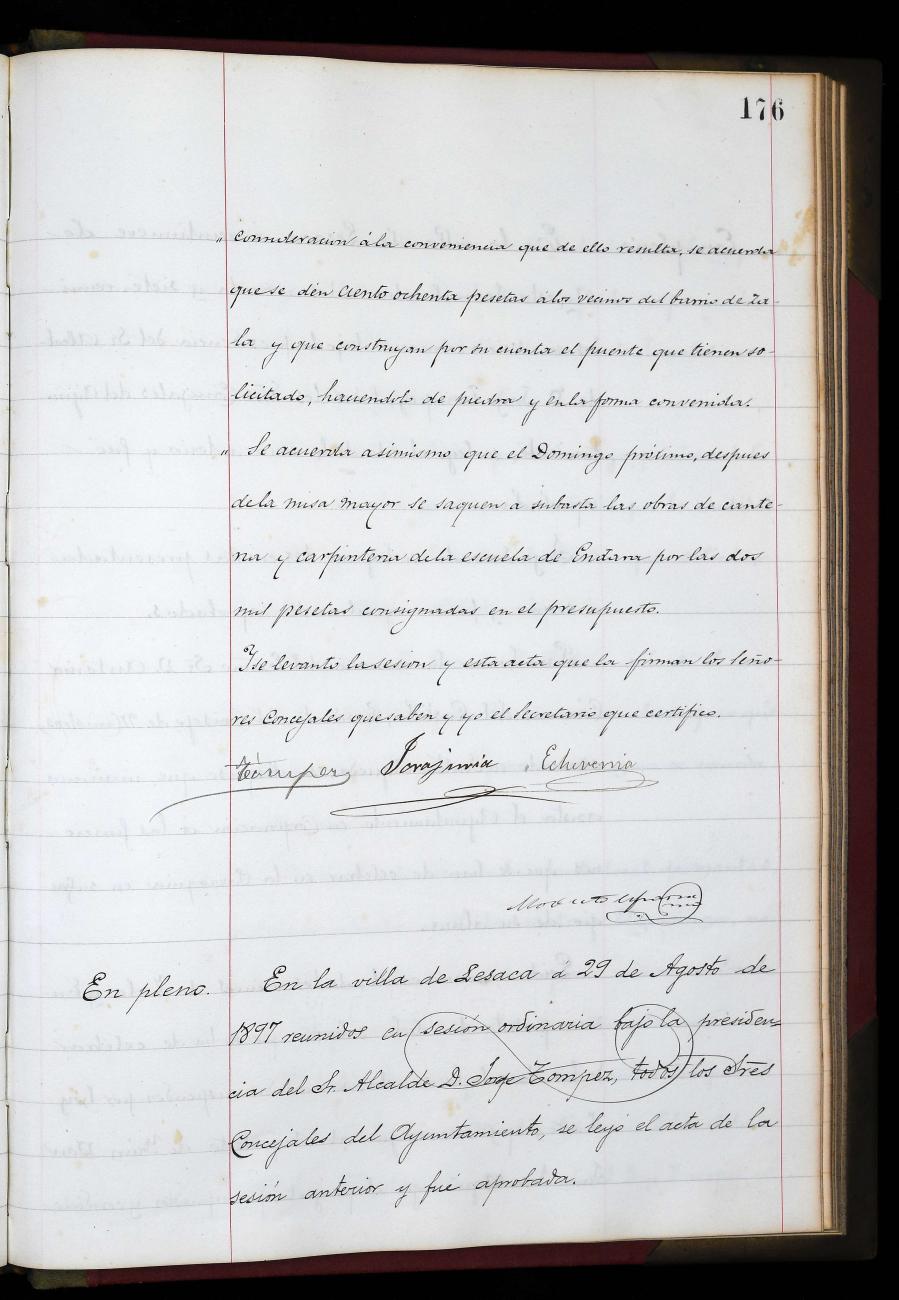 176
" consideracion á la conveniencia que de ello resulta, se acuerda
que se dén ciento ochenta pesetas á los vecinos del barrio de Za-
la y que construyan por su cuenta el puente que tienen so-
licitado, haciendolo de piedra y en la forma convenida.
" Se acuerda asimismo que el Domingo próximo, despues
de la misa mayor se saquen a subasta las obras de cante-
ria y carpinteria de la escuela de Endara por las dos
mil pesetas consignadas en el presupuesto.
Y se levanto la sesion y esta acta que la firman los Seño-
res Concejales que saben y yo el Secretario que certifico.
Tompez Echeverria
En pleno. En la villa de Lesaca á 29 de Agosto de
1897 reunidos en sesión ordinaria bajo la presiden-
cia del Sr. Alcalde D. Jorge Tompez, todos los Sres
Concejales del Ayuntamiento, se leyó el acta de la
sesión anterior y fué aprobada.